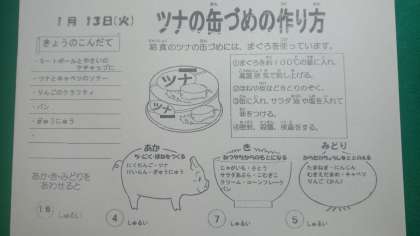 1月 13日(火)
ツナの缶づめの作り方
きょうのこんだて
給食のツナの缶づめには、まぐろを使っています。
・ミートボールとやさいの
ケチャップに
・ツナとキャベツのソテー
・りんごのクラフティ
・パン
・ぎゅうにゅう
ツナ
ツナ
①まぐろを約100℃の釜に入れ、
高温蒸気で蒸し上げる。
②ほねや皮などをとりのぞく。
③缶に入れ、サラダ油や塩を入れて
④密封、殺菌、検査をする。
あか・き・みどりを
あわせると
16
しゅるい
あか
ち・にく・ほねをつくる
にくだんご・ツナ
けいらん・ぎゅうにゅう
4
しゅるい
き
ねつやちからのもとになる
じゃがいも・さとう
サラダあぶら・こむぎこ
クリーム・コーンフレーク
パン
7
しゅるい
みどり
からだのちょうしをととのえる
たまねぎ・にんじん
むきえだまめ・キャベツ
りんご(かん)
5
しゅるい